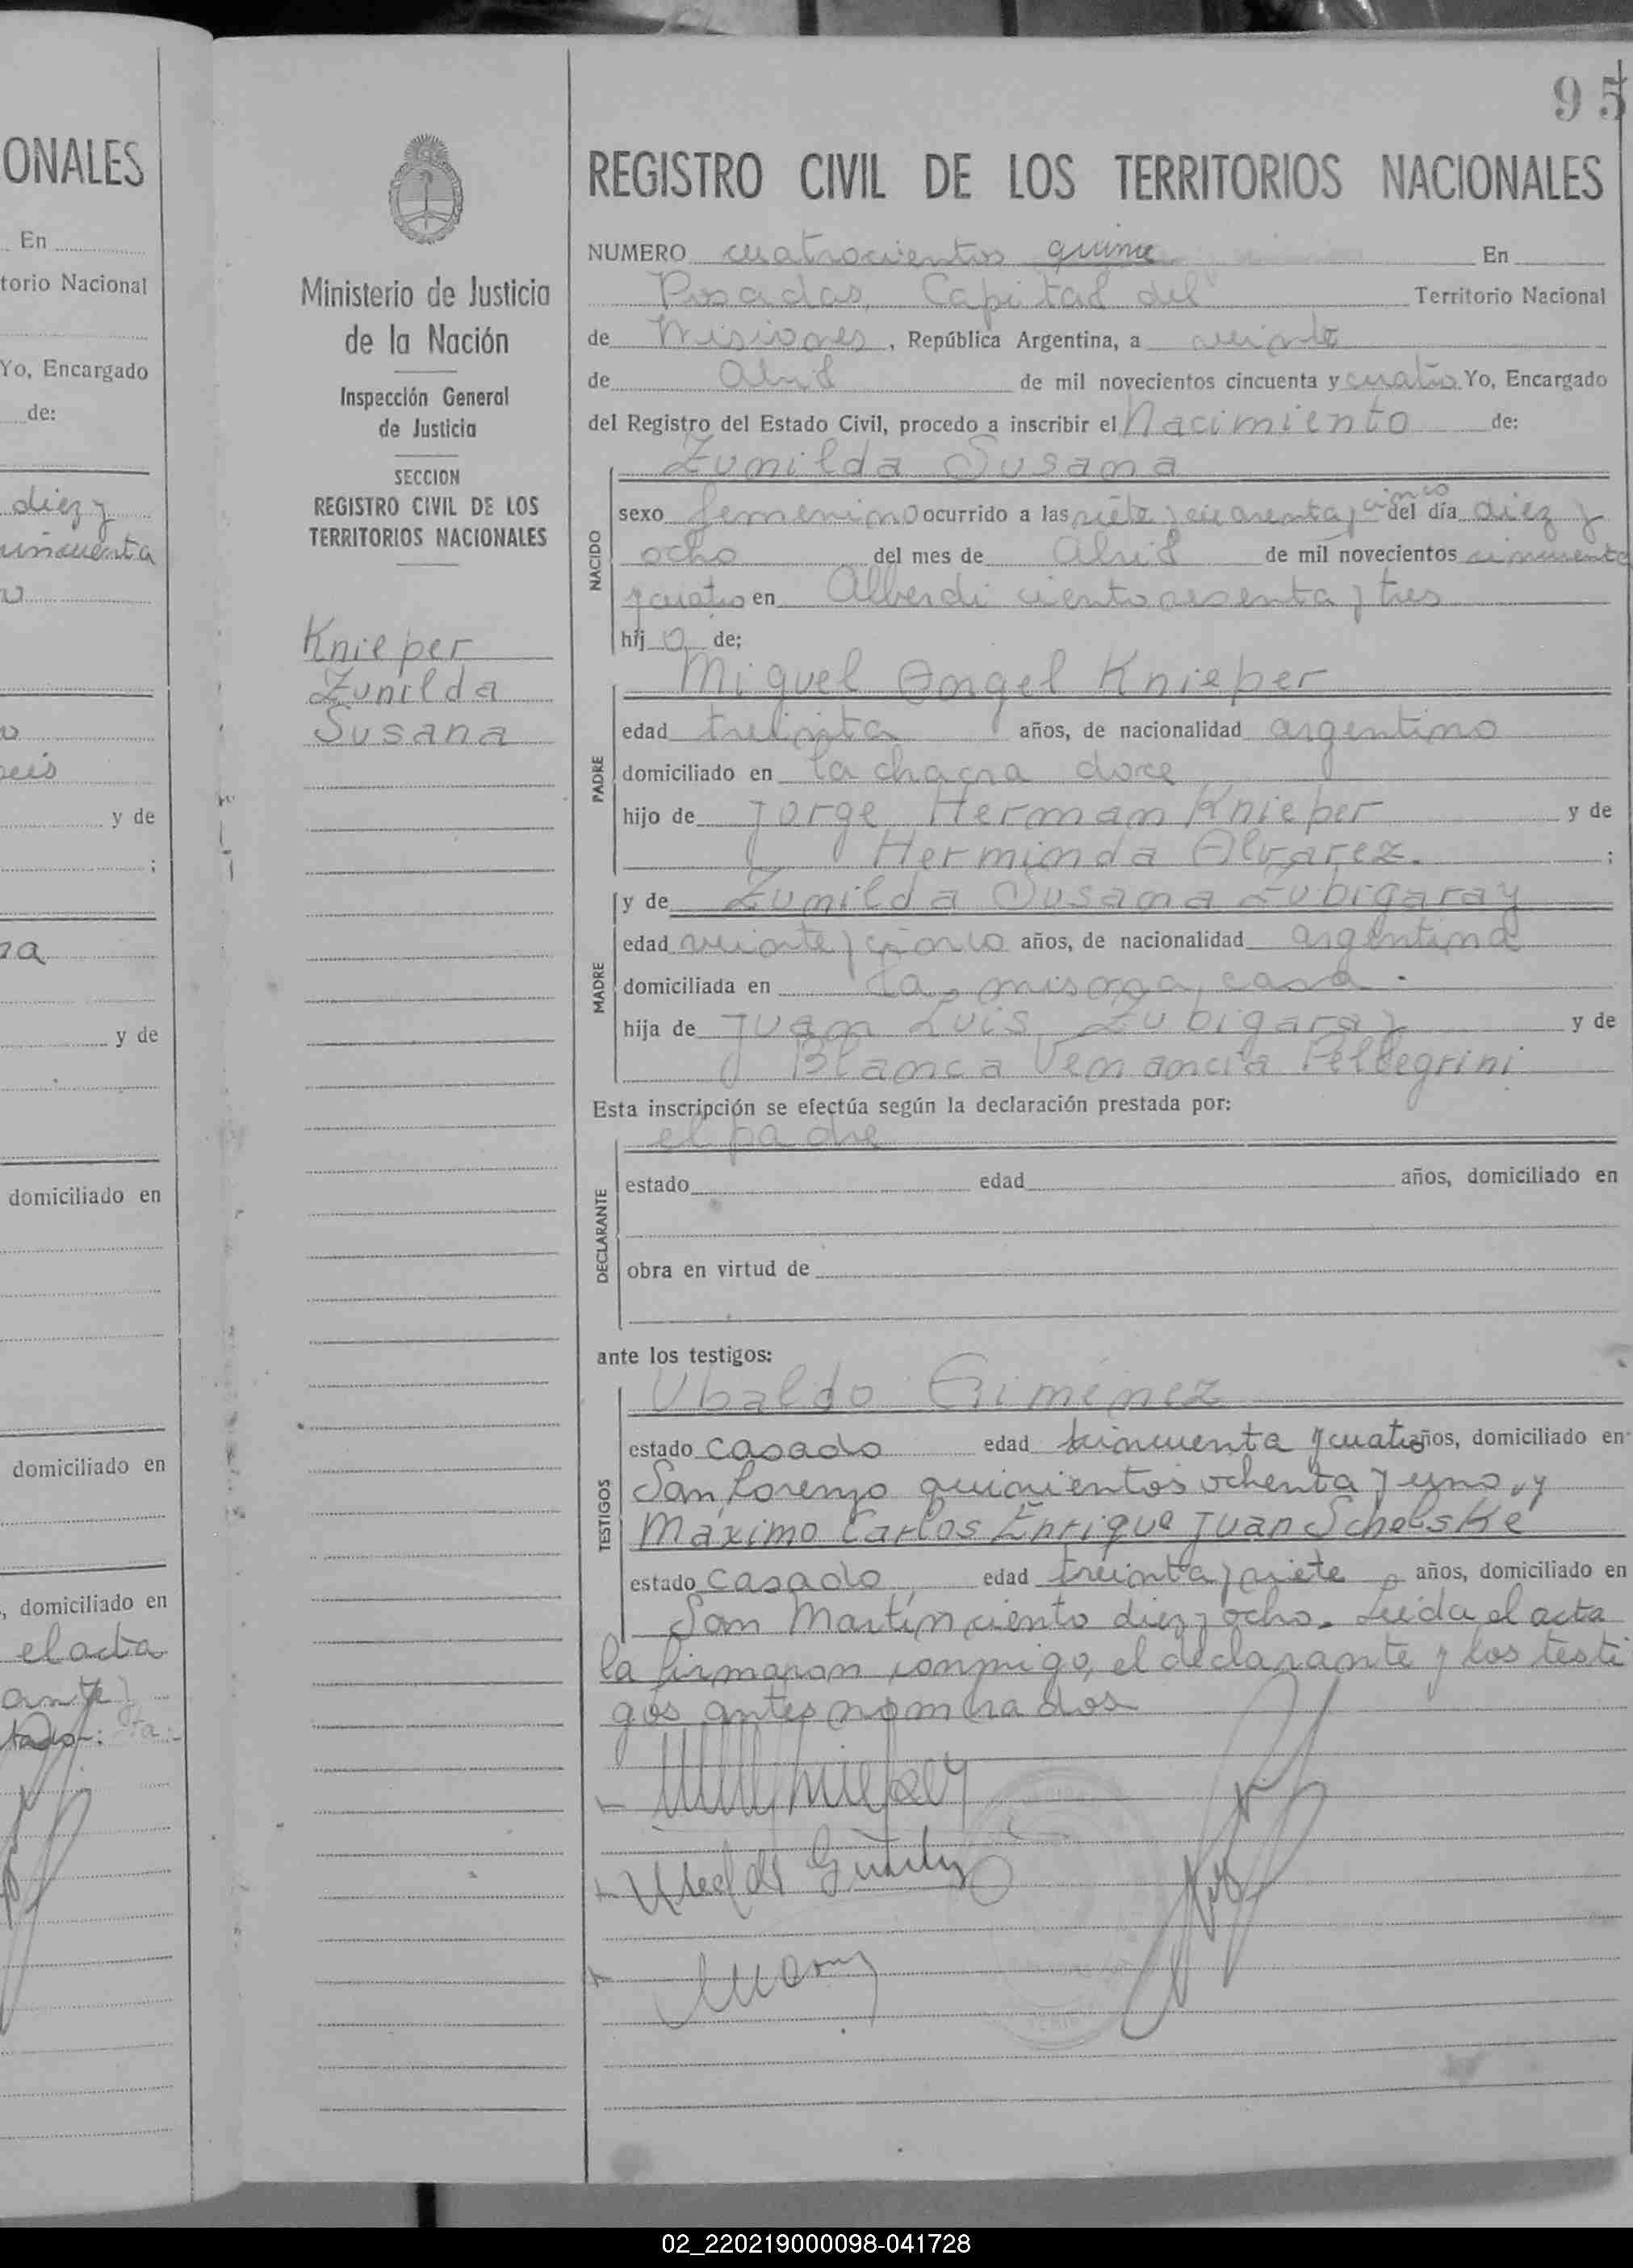 95
ONALES
En
torio Nacional
Yo, Encargado
de:
diez y
cincuenta
seis
y de
;
na
y de
domiciliado en
domiciliado en
, domiciliado en
el acta
ante y
Ministerio de Justicia
de la Nación
Inspección General
de Justicia
SECCION
REGISTRO CIVIL DE LOS
TERRITORIOS NACIONALES
Knieper
Zunilda
Susana
REGISTRO CIVIL DE LOS TERRITORIOS NACIONALES
NUMERO cuatrocientos quince En
Posadas, Capital del Territorio Nacional
de Misiones, República Argentina, a veinte
de Abril de mil novecientos cincuenta y cuatro Yo, Encargado
del Registro del Estado Civil, procedo a inscribir el Nacimiento de:
Zunilda Susana
NACIDO
sexo femenino ocurrido a las siete y cuarenta y cinco del día diez y
ocho del mes de Abril de mil novecientos cincuenta
y cuatro en Alberdi ciento sesenta y tres
hij a de;
PADRE
Miguel Angel Knieper
edad treinta años, de nacionalidad argentino
domiciliado en la chacra doce
hijo de Jorge Herman Knieper y de
Herminda Alvarez. ;
MADRE
y de Zunilda Susana Zubigaray
edad veinte y cinco años, de nacionalidad argentina
domiciliada en la misma casa.
hija de Juan Luis Zubigaray y de
Blanca Venancia Pellegrini
Esta inscripción se efectúa según la declaración prestada por:
el padre
DECLARANTE
estado edad años, domiciliado en
obra en virtud de
ante los testigos:
TESTIGOS
Ubaldo Giménez
estado casado edad cincuenta y cuatro años, domiciliado en
San Lorenzo quinientos ochenta y uno, y
Máximo Carlos Enrique Juan Schelske
estado casado, edad treinta y siete, años, domiciliado en
San Martín ciento diez y ocho. Leída el acta
la firmaron conmigo, el declarante y los testi
gos antes nombrados
02_220219000098-041728